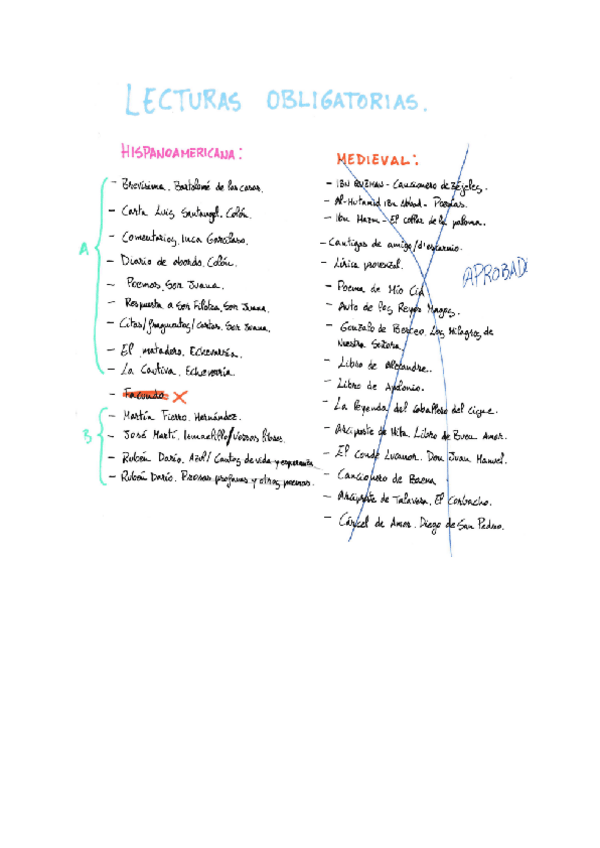 LECTURAS OBLIGATORIAS.
HISPANOAMERICANA:
A
- Brevísima. Bartolomé de las casas.
- Carta Luis Santangel. Colón.
- Comentarios, Inca Garcilaso.
- Diario de abordo. Colón.
- Poemas, Sor Juana.
- Respuesta a Sor Filotea, Sor Juana.
- Citas/fragmentos/cartas. Sor Juana.
- El matadero. Echevarría.
- La Cautiva. Echeverría
- Facundo X
B
- Martín Fierro. Hernández.
- José Martí. Ismaelillo/Versos libres.
- Rubén Darío. Azul/ Cantos de vida y esperanza
- Rubén Darío. Prosas profanas y otros poemas.
MEDIEVAL:
- IBN QUZMAN - Cancionero de Zéjeles.
- Al-Mutamid Ibn Abbad - Poesías.
- Ibn Hazm - El collar de la paloma.
- Cantigas de amigo/d'escarnio.
- Lírica provenzal.
- Poema de Mío Cid
- Auto de los Reyes Magos.
- Gonzalo de Berceo. Los Milagros de
Nuestra Señora.
- Libro de Alexandre.
- Libro de Apolonio.
- La leyenda del caballero del cigne.
- Arcipreste de Hita. Libro de Buen Amor.
- El Conde Lucanor. Don Juan Manuel.
- Cancionero de Baena
- Arcipreste de Talavera. El Corbacho.
- Cárcel de Amor. Diego de San Pedro.
APROBADO